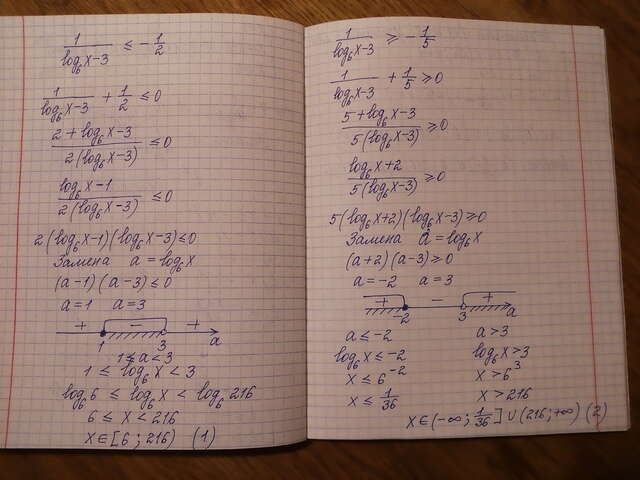 1/(log₆x-3) ≤ -1/2
1/(log₆x-3) + 1/2 ≤ 0
(2+log₆x-3)/(2(log₆x-3)) ≤ 0
(log₆x-1)/(2(log₆x-3)) ≤ 0
2(log₆x-1)(log₆x-3) ≤ 0
Замена a = log₆x
(a-1)(a-3) ≤ 0
a=1 a=3
+ - +
1 3 a
1 ≤ a < 3
1 ≤ log₆x < 3
log₆6 ≤ log₆x < log₆216
6 ≤ x < 216
x∈[6; 216) (1)
1/(log₆x-3) ≥ -1/5
1/(log₆x-3) + 1/5 ≥ 0
(5+log₆x-3)/(5(log₆x-3)) ≥ 0
(log₆x+2)/(5(log₆x-3)) ≥ 0
5(log₆x+2)(log₆x-3) ≥ 0
Замена a = log₆x
(a+2)(a-3) ≥ 0
a=-2 a=3
+ - +
-2 3 a
a ≤ -2 a > 3
log₆x ≤ -2 log₆x > 3
x ≤ 6⁻² x > 6³
x ≤ 1/36 x > 216
x∈(-∞; 1/36] ∪ (216; +∞) (2)